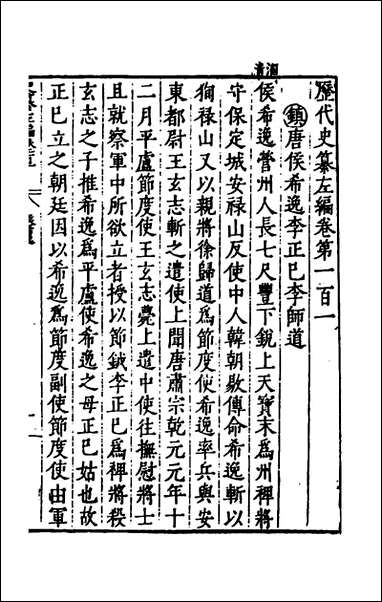 歷代史纂左編卷第一百一
鎮唐侯希逸李正已李師道
淄青
侯希逸營州人長七尺豐下銳上天寶末爲州禆將
守保定城安祿山反使中人韓朝敭傳命希逸斬以
徇祿山又以親將徐歸道爲節度使希逸率兵與安
東都尉王玄志斬之遣使上聞唐肅宗乾元元年十
二月平盧節度使王玄志薨上遣中使往撫慰將士
且就察軍中所欲立者授以節鉞李正已爲禆將殺
玄志之子推希逸爲平盧使希逸之母正已姑也故
正已立之朝廷因以希逸爲節度副使節度使由軍